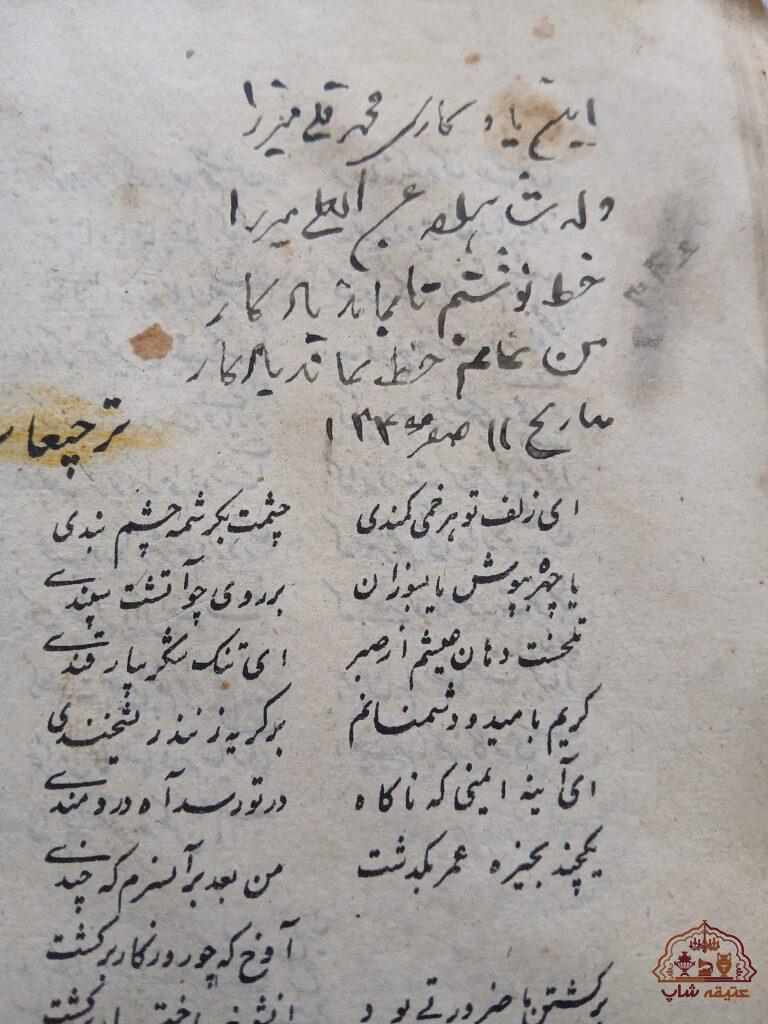 این یادگاری محمد قلی میرزا
ولد شا عبدالعلی میرزا
خط نوشتم تا بماند یادگار
من نمانم خط بماند یادگار
بتاریخ ۱۱ صفر ۱۳۴
ترجیعا
ای زلف تو هر خمی کمندی چشمت بکرشمه چشم بندی
یا چهره بپوش یا بسوزان بر روی چو آتشت سپندی
تلخست دهان عیشم از صبر ای تنک شکر بیار قندی
کریم بامید و دشمنانم بر کریه زنند ریشخندی
ای آینه ایمنی که ناکاه در تو رسد آه دردمندی
یکچند بخیره عمر بگذشت من بعد بر آنسرم که چندی
آوخ که چو روزکار برکشت
برکشتن ما ضرورتی بود
عتیقه شاپ